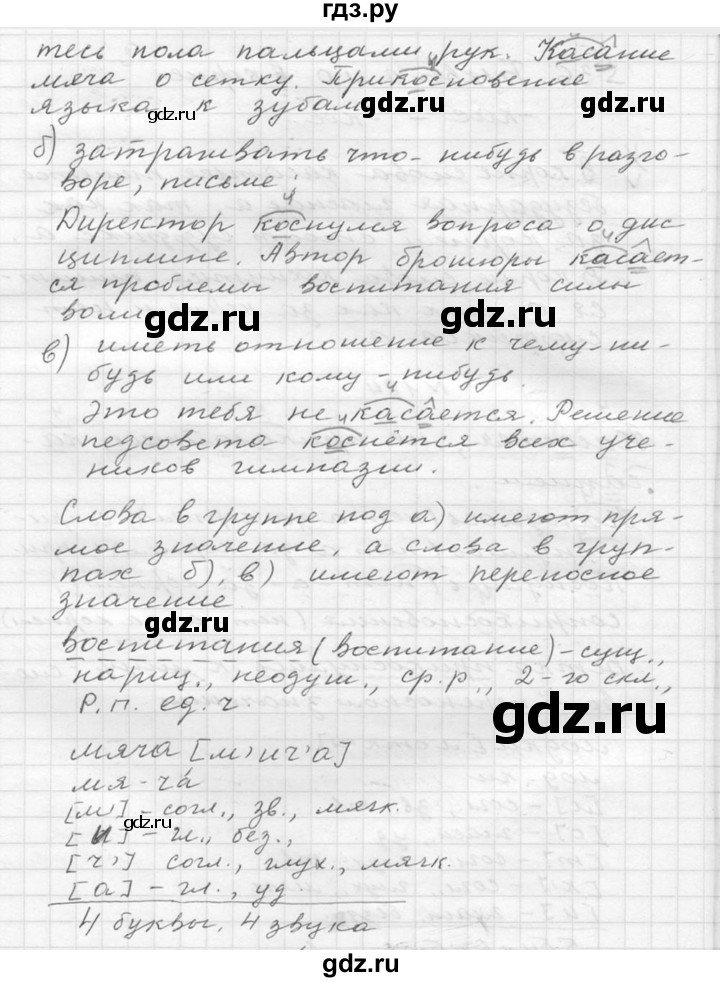 гдз.ру
тесь пола пальцами рук. Касание
мяча о сетку. Прикосновение
языка к зубам.
gdz.ru
gdz.ru
б) затрагивать что-нибудь в разго-
воре, письме:
Директор коснулся вопроса о дис
циплине. Автор брошюры касает-
ся проблемы воспитания силы
воли.
gdz.ru
gdz.ru
в) иметь отношение к чему-ни-
будь или кому-нибудь.
Это тебя не касается. Решение
педсовета коснётся всех уче-
ников гимназии.
Слова в группе под а) имеют пря-
мое значение, а слова в груп-
пах б), в) имеют переносное
значение
gdz.ru
воспитания (воспитание) - сущ.,
нариц., неодуш., ср.р., 2-го скл.,
Р.п. ед.ч.
gdz.ru
мяча [м'ич'а]
мя-ча́
[м'] - согл., зв., мягк.
[и] - гл., без.,
gdz.ru
[ч'] согл., глух., мягк.
[а] - гл., уд.
4 буквы, 4 звука
gdz.ru
gdz.ru